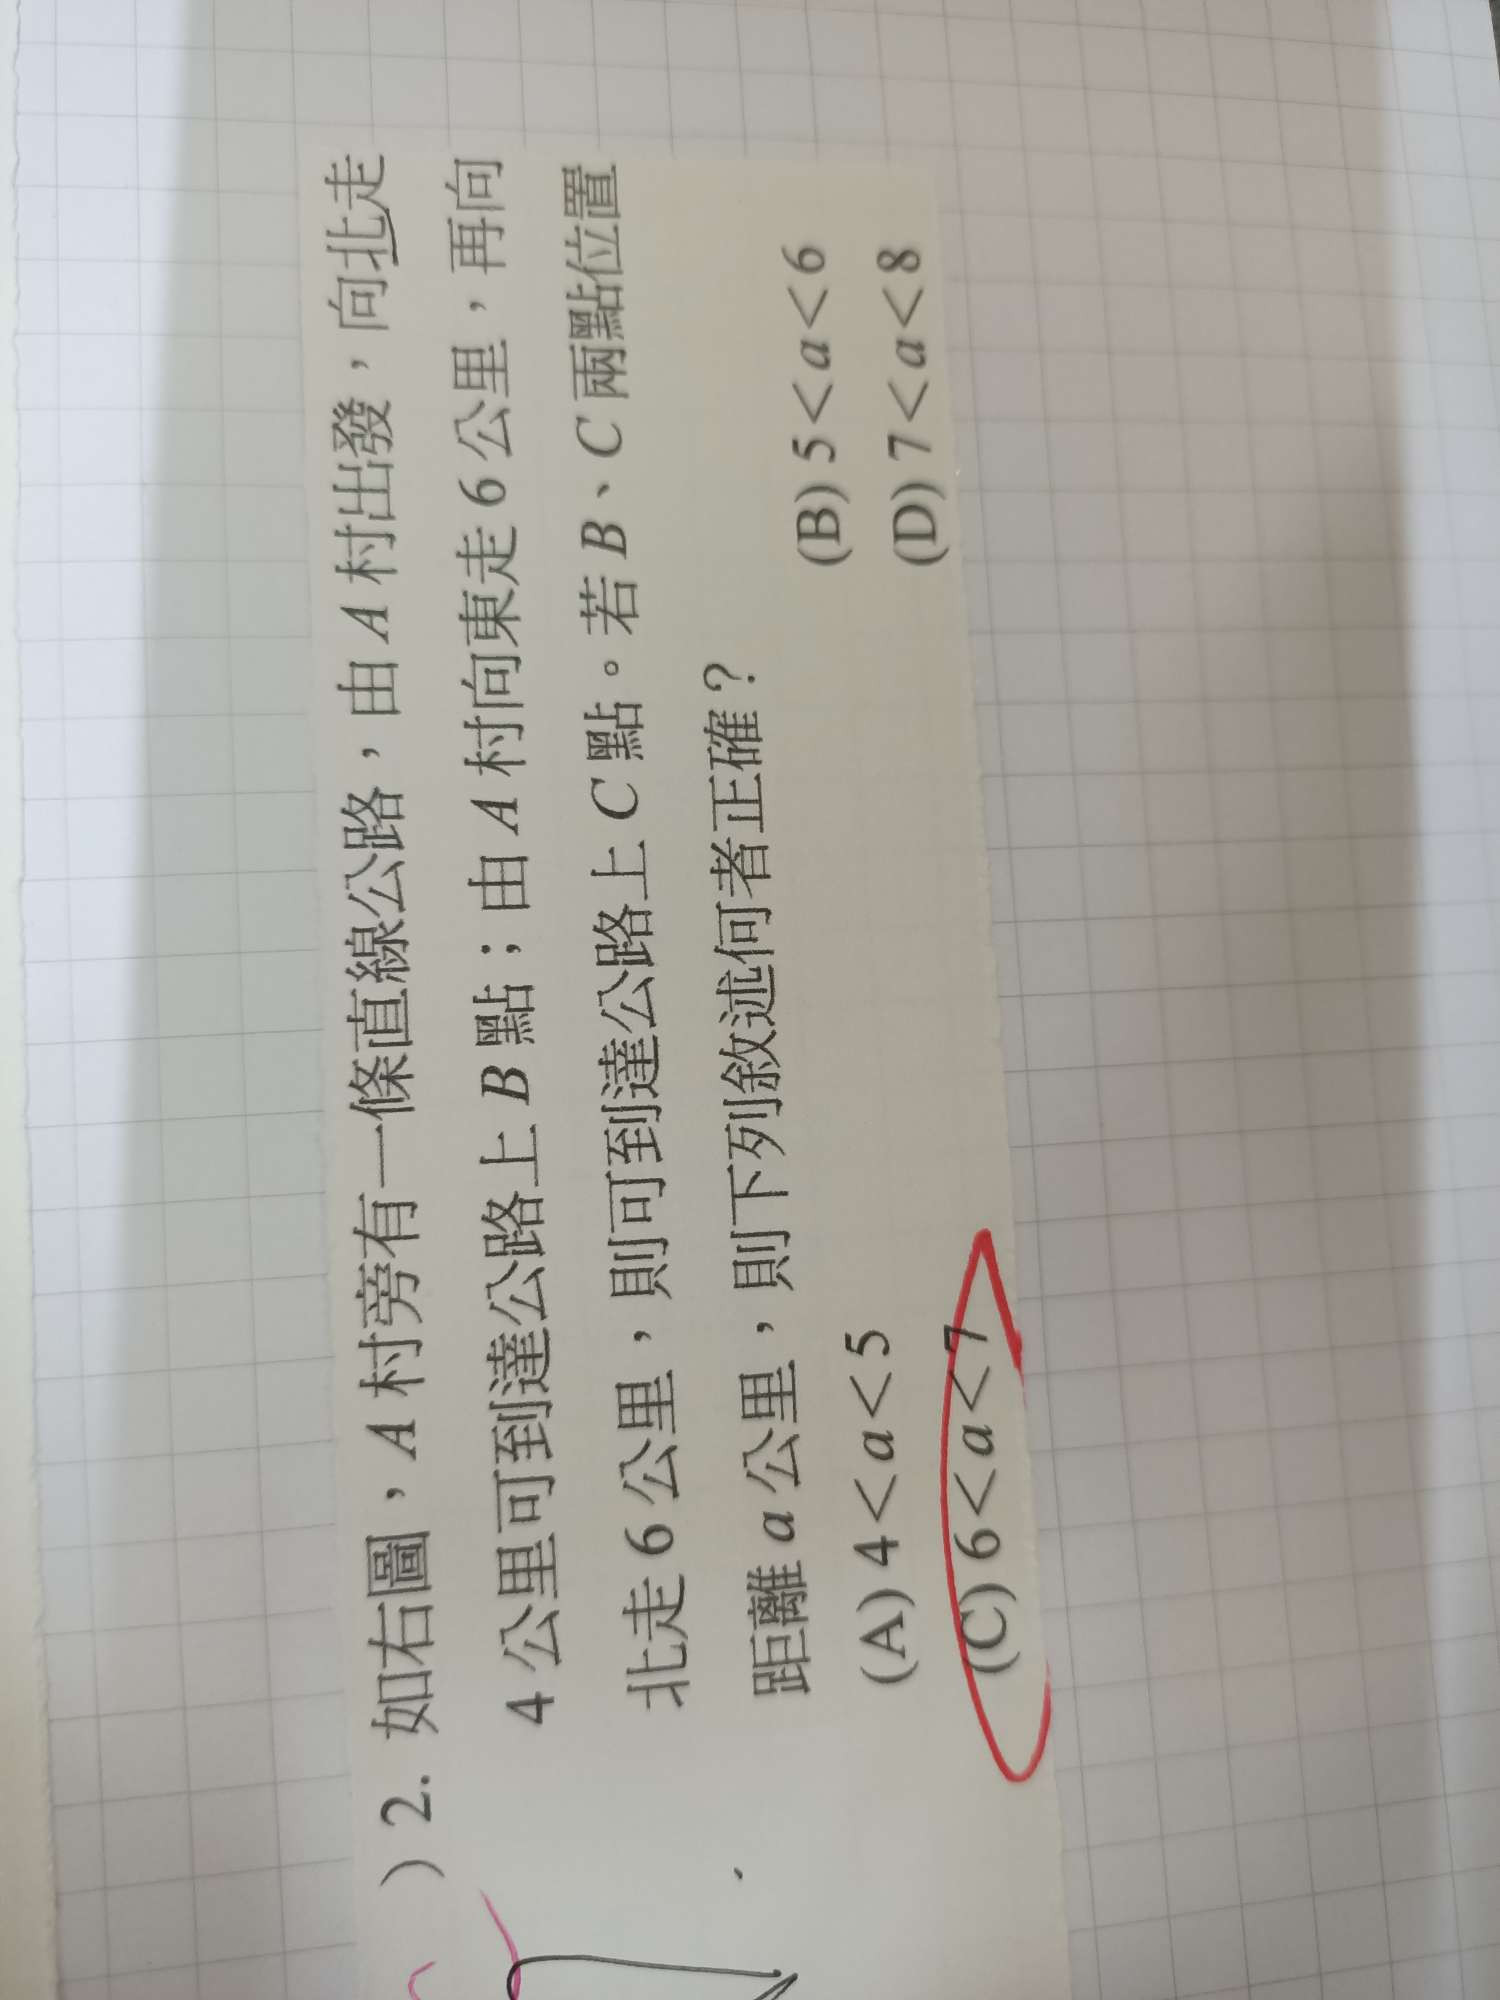 )2. 如右圖，A 村旁有一條直線公路，由 A 村出發，向北走
4 公里可到達公路上 B 點；由 A 村向東走 6 公里，再向
北走 6 公里，則可到達公路上 C 點。若 B、C 兩點位置
距離 a 公里，則下列敘述何者正確？
(A) 4＜a＜5 (B) 5＜a＜6
(C) 6＜a＜7 (D) 7＜a＜8